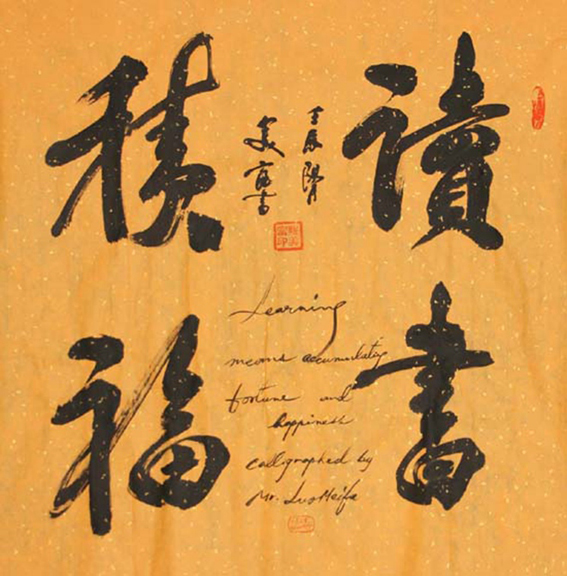 讀書
積福
壬辰
美富書
Learning
means accumulating
fortune and
happiness
calligraphed by
Mr. LuoMeifu